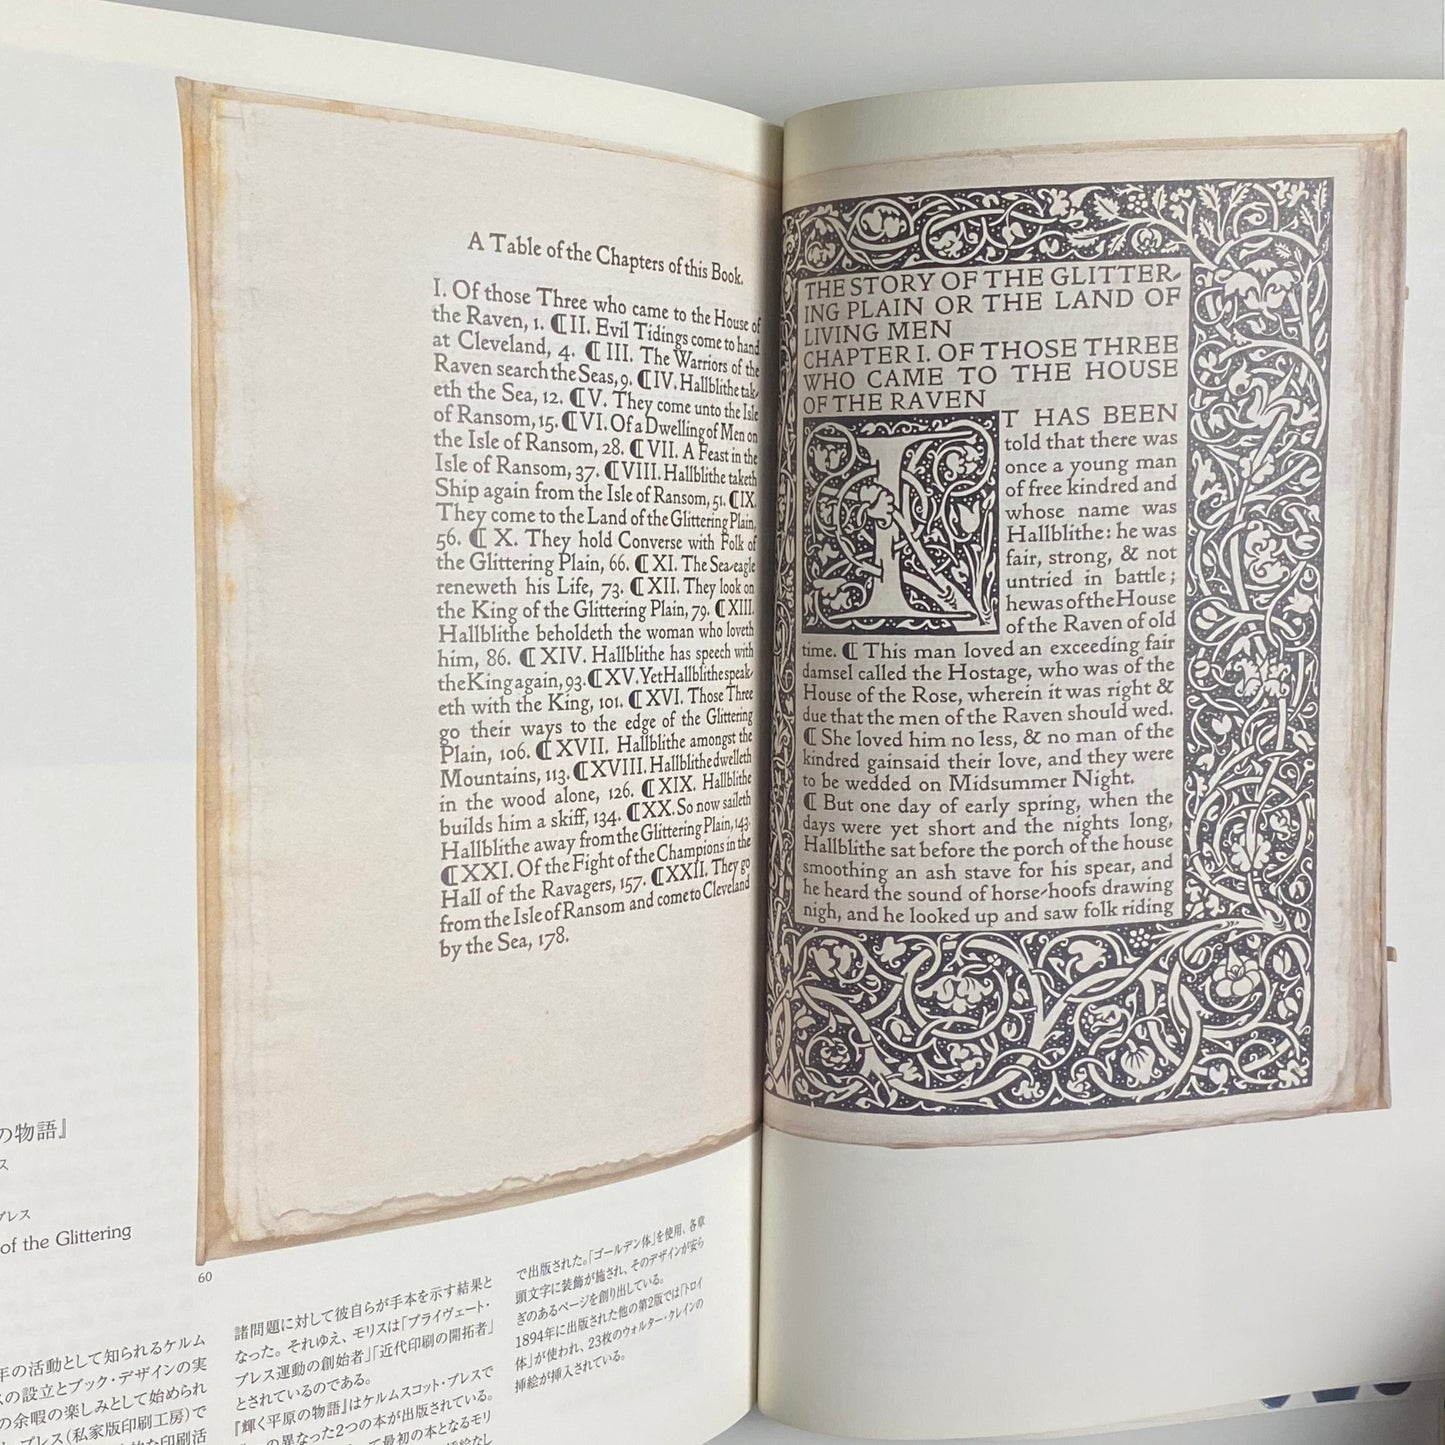 A Table of the Chapters of this Book.
I. Of those Three who came to the House of
the Raven, 1. ⁋II. Evil Tidings come to hand
at Cleveland, 4. ⁋III. The Warriors of the
Raven search the Seas, 9. ⁋IV. Hallblithe tak-
eth the Sea, 12. ⁋V. They come unto the Isle
of Ransom, 15. ⁋VI. Of a Dwelling of Men on
the Isle of Ransom, 28. ⁋VII. A Feast in the
Isle of Ransom, 37. ⁋VIII. Hallblithe taketh
Ship again from the Isle of Ransom, 51. ⁋IX.
They come to the Land of the Glittering Plain,
56. ⁋X. They hold Converse with Folk of
the Glittering Plain, 66. ⁋XI. The Sea-eagle
reneweth his Life, 73. ⁋XII. They look on
the King of the Glittering Plain, 79. ⁋XIII.
Hallblithe beholdeth the woman who loveth
him, 86. ⁋XIV. Hallblithe has speech with
the King again, 93. ⁋XV. Yet Hallblithe speak-
eth with the King, 101. ⁋XVI. Those Three
go their ways to the edge of the Glittering
Plain, 106. ⁋XVII. Hallblithe amongst the
Mountains, 113. ⁋XVIII. Hallblithe dwelleth
in the wood alone, 126. ⁋XIX. Hallblithe
builds him a skiff, 134. ⁋XX. So now saileth
Hallblithe away from the Glittering Plain, 143.
⁋XXI. Of the Fight of the Champions in the
Hall of the Ravagers, 157. ⁋XXII. They go
from the Isle of Ransom and come to Cleveland
by the Sea, 178.
THE STORY OF THE GLITTER-
ING PLAIN OR THE LAND OF
LIVING MEN
CHAPTER I. OF THOSE THREE
WHO CAME TO THE HOUSE
OF THE RAVEN
IT HAS BEEN
told that there was
once a young man
of free kindred and
whose name was
Hallblithe: he was
fair, strong, & not
untried in battle;
he was of the House
of the Raven of old
time. ⁋ This man loved an exceeding fair
damsel called the Hostage, who was of the
House of the Rose, wherein it was right &
due that the men of the Raven should wed.
⁋ She loved him no less, & no man of the
kindred gainsaid their love, and they were
to be wedded on Midsummer Night.
⁋ But one day of early spring, when the
days were yet short and the nights long,
Hallblithe sat before the porch of the house
smoothing an ash stave for his spear, and
he heard the sound of horse-hoofs drawing
nigh, and he looked up and saw folk riding
の物語』
ス
プレス
of the Glittering
60
年の活動として知られるケルム
スの設立とブック・デザインの実
の余暇の楽しみとして始められ
プレス（私家版印刷工房）で
な印刷活
諸問題に対して彼自らが手本を示す結果と
なった。それゆえ、モリスは「プライヴェート・
プレス運動の創始者」「近代印刷の開拓者」
とされているのである。
『輝く平原の物語』はケルムスコット・プレスで
の異なった2つの本が出版されている。
て最初の本となるモリ
挿絵なし
で出版された。「ゴールデン体」を使用、各章
頭文字に装飾が施され、そのデザインが安ら
ぎのあるページを創り出している。
1894年に出版された他の第2版では「トロイ
体」が使われ、23枚のウォルター・クレインの
挿絵が挿入されている。